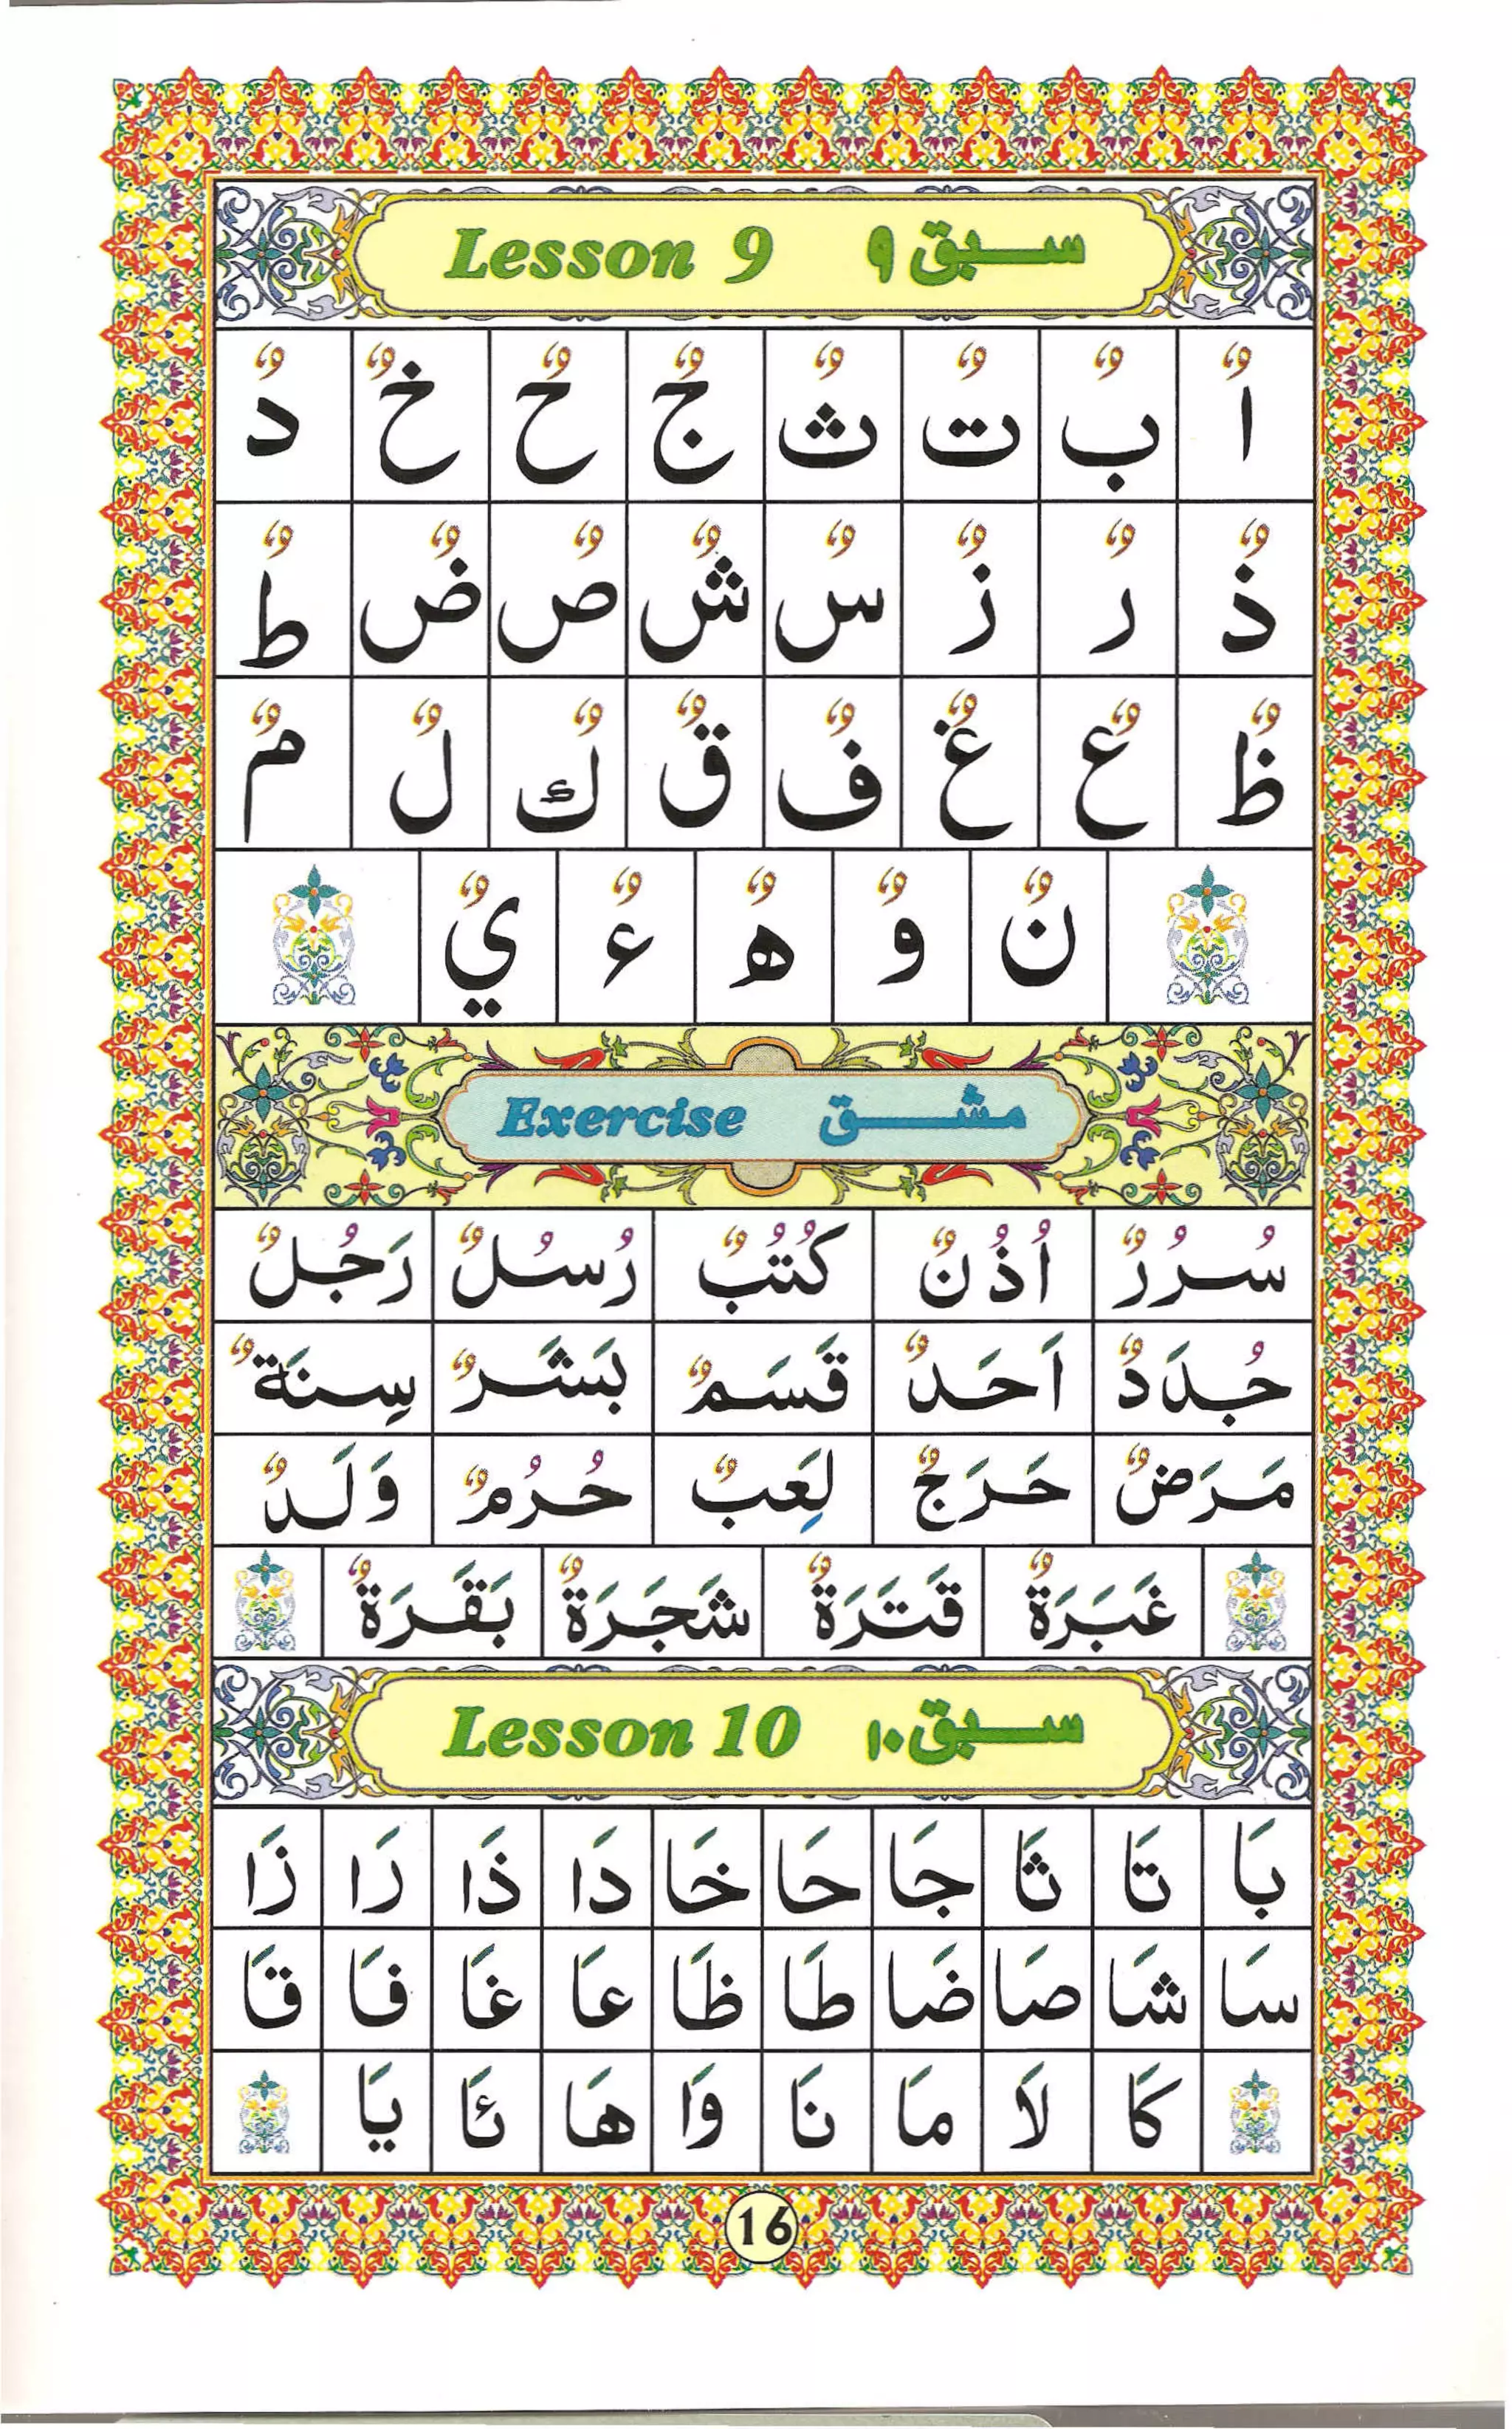 Lesson 9 سبق ۹
اٌ بٌ تٌ ثٌ جٌ حٌ خٌ دٌ
ذٌ رٌ زٌ سٌ شٌ صٌ ضٌ طٌ
ظٌ عٌ غٌ فٌ قٌ كٌ لٌ مٌ
نٌ وٌ هٌ ءٌ يٌ
Exercise مشق
سُرُرٌ اُذُنٌ كُتُبٌ رُسُلٌ رَجُلٌ
جُدَدٌ اَحَدٌ قَسَمٌ بَشَرٌ سِنَةٌ
مَرَضٌ حَرَجٌ لَعِبٌ حُرُمٌ وَلَدٌ
غَبَرَةٌ قَتَرَةٌ شَجَرَةٌ بَقَرَةٌ
Lesson 10 سبق ۱۰
بَا تَا ثَا جَا حَا خَا دَا ذَا رَا زَا
سَا شَا صَا ضَا طَا ظَا عَا غَا فَا قَا
كَا لَا مَا نَا وَا هَا ئَا يَا
16